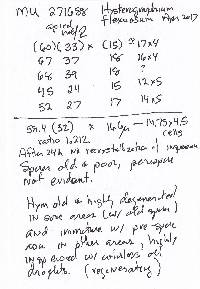 MU 271658 Hysterangium
flexuosum Mar 2017
apical
half
(60)(33) x (15) = 17x4
67 37 18 16x4
68 39 18 ?
45 24 15 12x5
52 27 17 14x5
58.4 (32) x 16.6µ — 14.75x4.5
ratio 1.212 cells
After 24h no recrystallization of
Spores old & poor, perispore
not evident.
Hym old & highly degenerated
in some areas (w/ old spores)
and immature w/ pre spore
asci in other areas, highly
w/ oil
droplets. (regenerating)